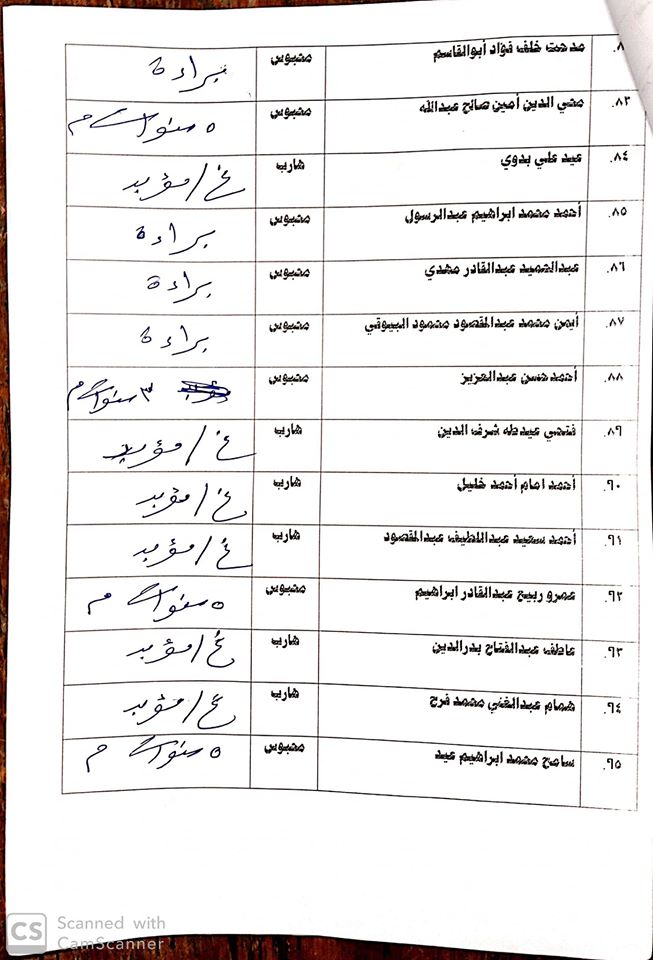 مدحت خلف فؤاد أبوالقاسم محبوس براءة
٨٣. محي الدين أمين صالح عبدالله محبوس ٥ سنوات م
٨٤. عيد علي بدوي هارب غ/مؤبد
٨٥. أحمد محمد ابراهيم عبدالرسول محبوس براءة
٨٦. عبدالحميد عبدالقادر مهدي محبوس براءة
٨٧. أيمن محمد عبدالمقصود محمود البيوقي محبوس براءة
٨٨. أحمد حسن عبدالعزيز محبوس ٣ سنوات م
٨٩. فتحي عيد طه شرف الدين هارب غ/مؤبد
٩٠. أحمد امام أحمد خليل هارب غ/مؤبد
٩١. أحمد سعيد عبداللطيف عبدالمقصود هارب غ/مؤبد
٩٢. عمرو ربيع عبدالقادر ابراهيم محبوس ٥ سنوات م
٩٣. عاطف عبدالفتاح بدرالدين هارب غ/مؤبد
٩٤. همام عبدالغني محمد فرج هارب غ/مؤبد
٩٥. سامح محمد ابراهيم عيد محبوس ٥ سنوات م
CS Scanned with
CamScanner